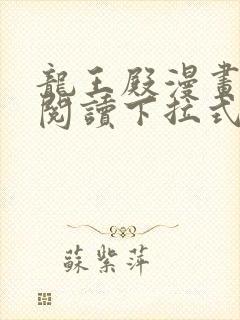 龍王殿漫畫
閱讀下拉式
蘇紫萍